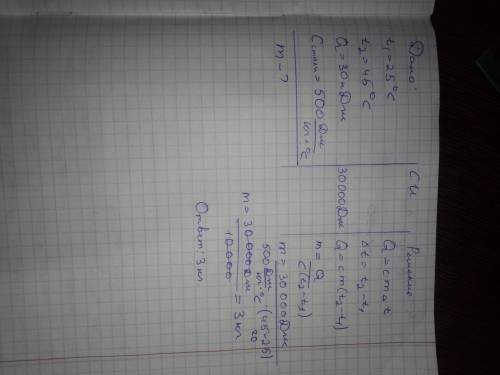 Дано:
t₁ = 25°C
t₂ = 45°C
Q = 30кДж
Cстали = 500 Дж
кг · °C
m - ?
СИ
30000Дж
Решение
Q = cm△t
△t = t₂ - t₁
Q = cm(t₂ - t₁)
m = Q
c(t₂ - t₁)
m = 30000Дж
500 Дж (45-25)
кг · °C 20
m = 30000Дж = 3 кг
10000
Ответ: 3 кг.